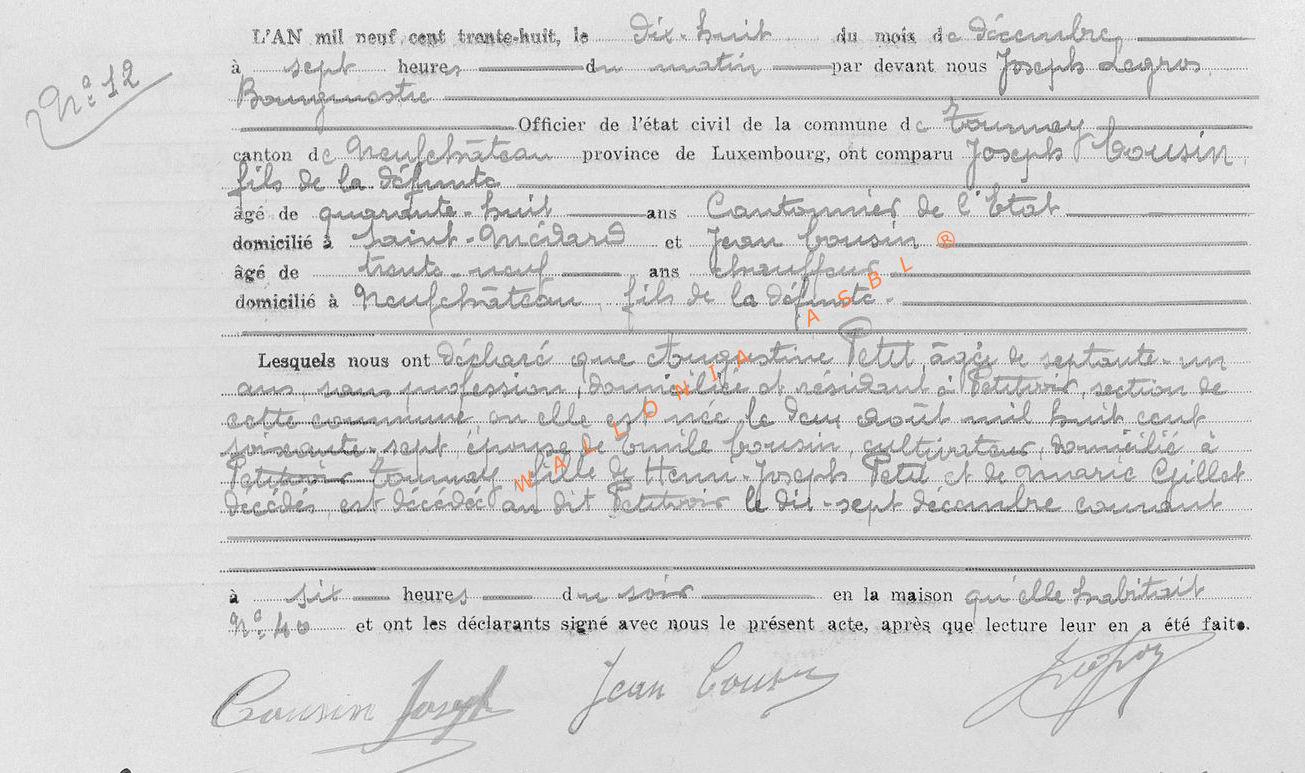 Nº 12
L'AN mil neuf cent trente-huit, le dix-huit du mois de décembre
à sept heures du matin par devant nous Joseph Legros
Bourgmestre
Officier de l'état civil de la commune de Tournay
canton de Neufchâteau province de Luxembourg, ont comparu Joseph Cousin,
fils de la défunte
âgé de quarante-huit ans Cantonnier de l'Etat
domicilié à Saint-Médard et Jean Cousin
âgé de trente-neuf ans chauffeur
domicilié à Neufchâteau, fils de la défunte.
Lesquels nous ont déclaré que Augustine Petit, âgée de septante-un
ans, sans profession, domiciliée et résidant à Petitvoir, section de
cette commune, où elle est née le deux août mil huit cent
soixante-sept, épouse de Emile Cousin, cultivateur, domicilié à
Petitvoir Tournay, fille de Henri-Joseph Petit et de Marie Gillet
décédés, est décédée au dit Petitvoir le dix-sept décembre courant
à six heures du soir en la maison qu'elle habitait
Nº 40 et ont les déclarants signé avec nous le présent acte, après que lecture leur en a été faite.
Cousin Joseph Jean Cousin
WALLONIA ASBL ®